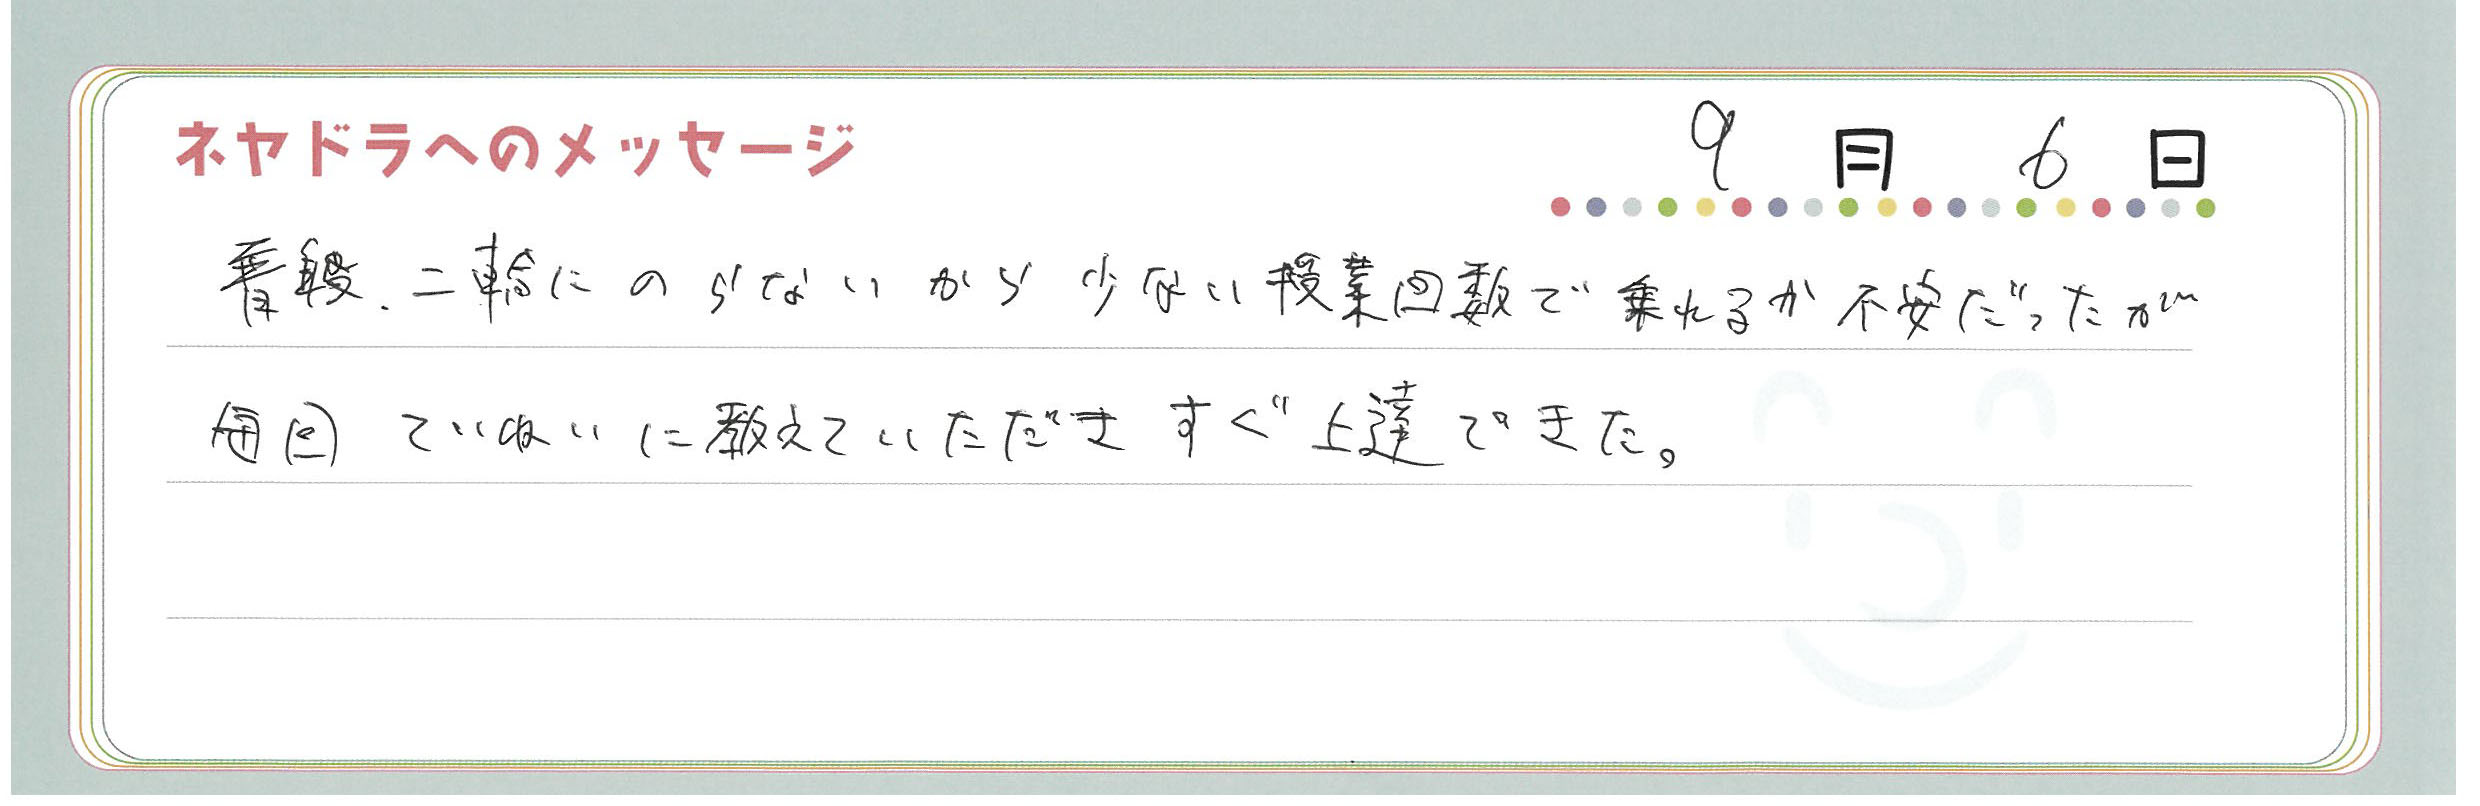 ネヤドラへのメッセージ
9月6日
普段、二輪にのらないから少ない授業回数で乗れるか不安だったが
毎回ていねいに教えていただきすぐ上達できた。